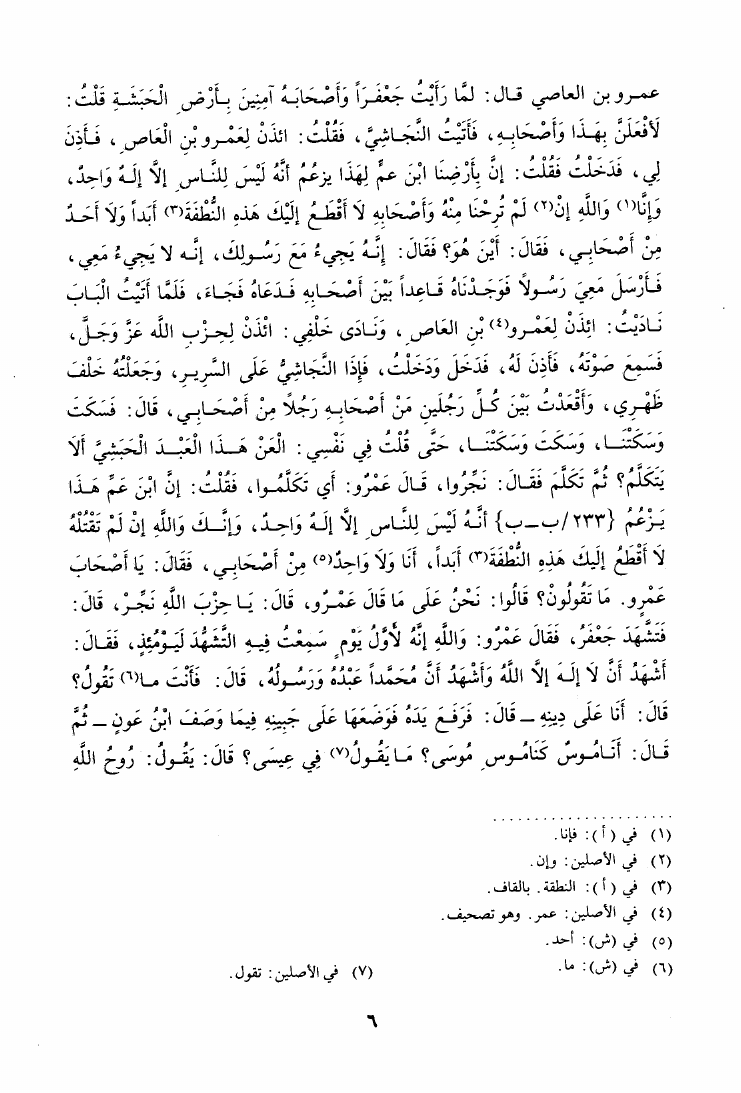 عمرو بن العاصي قال: لمَّا رَأَيْتُ جَعْفَراً وَأَصْحَابَهُ آمِنِينَ بِأَرْضِ الْحَبَشَةِ قُلْتُ:
لَأَفْعَلَنَّ بِهَذَا وَأَصْحَابِهِ، فَأَتَيْتُ النَّجَاشِيَّ، فَقُلْتُ: ائذَنْ لِعَمْرِو بْنِ الْعَاصِ، فَأَذِنَ
لِي، فَدَخَلْتُ فَقُلْتُ: إِنَّ بِأَرْضِنَا ابْنَ عَمٍّ لِهَذَا يزعُمُ أَنَّهُ لَيْسَ لِلنَّاسِ إلَّا إلَهٌ وَاحِدٌ،
وَإِنَّا(١) وَاللَّهِ إنْ(٢) لَمْ تُرِحْنَا مِنْهُ وَأَصْحَابِهِ لَا أَقْطَعُ إِلَيْكَ هَذِهِ النُّطْفَةَ(٣) أَبَداً وَلَا أَحَدٌ
مِنْ أَصْحَابِي، فَقَالَ: أَيْنَ هُوَ؟ فقَالَ: إِنَّهُ يَجِيءُ مَعَ رَسُولِكَ، إنَّه لا يَجِيءُ مَعِي،
فَأَرْسَلَ مَعِيَ رَسُولاً فَوَجَدْنَاهُ قَاعِداً بَيْنَ أَصْحَابِهِ فَدَعَاهُ فَجَاءَ، فَلَمَّا أَتَيْتُ الْبَابَ
نَادَيْتُ: ائِذَنْ لِعَمْرِو(٤) بْنِ العَاصِ، وَنَادَى خَلْفِي: ائْذَنْ لِحِزْبِ اللَّه عَزَّ وَجَلَّ،
فَسَمِعَ صَوْتَهُ، فَأَذِنَ لَهُ، فَدَخَلَ وَدَخَلْتُ، فَإِذَا النَّجَاشِيُّ عَلَى السَّرِيرِ، وَجَعَلْتُهُ خَلْفَ
ظَهْرِي، وَأَقْعَدْتُ بَيْنَ كُلِّ رَجُلَينِ مَنْ أَصْحَابِهِ رَجُلاً مِنْ أَصْحَابِي، قَالَ: فَسَكَتَ
وَسَكَتْنَا، وَسَكَتَ وَسَكَتْنَا، حَتَّى قُلْتُ فِي نَفْسِي: الْعَنْ هَذَا الْعَبْدَ الْحَبَشِيَّ أَلَا
يَتَكَلَّمُ؟ ثُمَّ تَكَلَّمَ فَقَالَ: نَجِّرُوا، قَالَ عَمْرٌو: أي تَكَلَّمُوا، فَقُلْتُ: إِنَّ ابْنَ عَمِّ هَذَا
يَزْعُمُ {٢٣٣/ب-ب} أَنَّهُ لَيْسَ لِلنَّاسِ إلَّا إلَهٌ وَاحِدٌ، وَإِنَّكَ وَاللَّهِ إنْ لَمْ تَقْتُلْهُ
لَا أَقْطَعُ إلَيْكَ هَذِهِ النُّطْفَةَ(٣) أَبَداً، أَنَا وَلَا وَاحِدٌ(٥) مِنْ أَصْحَابِي، فَقَالَ: يَا أَصْحَابَ
عَمْرٍو. مَا تَقُولُونَ؟ قَالُوا: نَحْنُ عَلَى مَا قَالَ عَمْرٌو، قَالَ: يَا حِزْبَ اللَّهِ نَجِّرْ، قَالَ:
فَتَشَهَّدَ جَعْفَرُ، فَقَالَ عَمْرٌو: وَاللَّهِ إنَّهُ لأَوَّلُ يَوْمٍ سَمِعْتُ فِيهِ التَّشَهُّدَ لَيَوْمُئِذٍ، فَقَالَ:
أَشْهَدُ أَنَّ لَا إلَهَ إلَّا اللَّهُ وَأَشْهَدُ أَنَّ مُحَمَّداً عَبْدُهُ وَرَسُولُهُ، قَالَ: فَأَنْتَ مَا(٦) تَقُولُ؟
قَالَ: أَنَا عَلَى دِينِهِ - قَالَ: فَرَفَعَ يَدَهُ فَوَضَعَهَا عَلَى جَبِينِهِ فِيمَا وَصَفَ ابْنُ عَونٍ - ثُمَّ
قَالَ: أَنَامُوسٌ كَنَامُوسِ مُوسَى؟ مَا يَقُولُ(٧) فِي عِيسَى؟ قَالَ: يَقُولُ: رُوحُ اللَّهِ
(١) في (أ): فإنا.
(٢) في الأصلين: وإن.
(٣) في (أ): النطقة. بالقاف.
(٤) في الأصلين: عمر. وهو تصحيف.
(٥) في (ش): أحد.
(٦) في (ش): ما.
(٧) في الأصلين: تقول.
٦